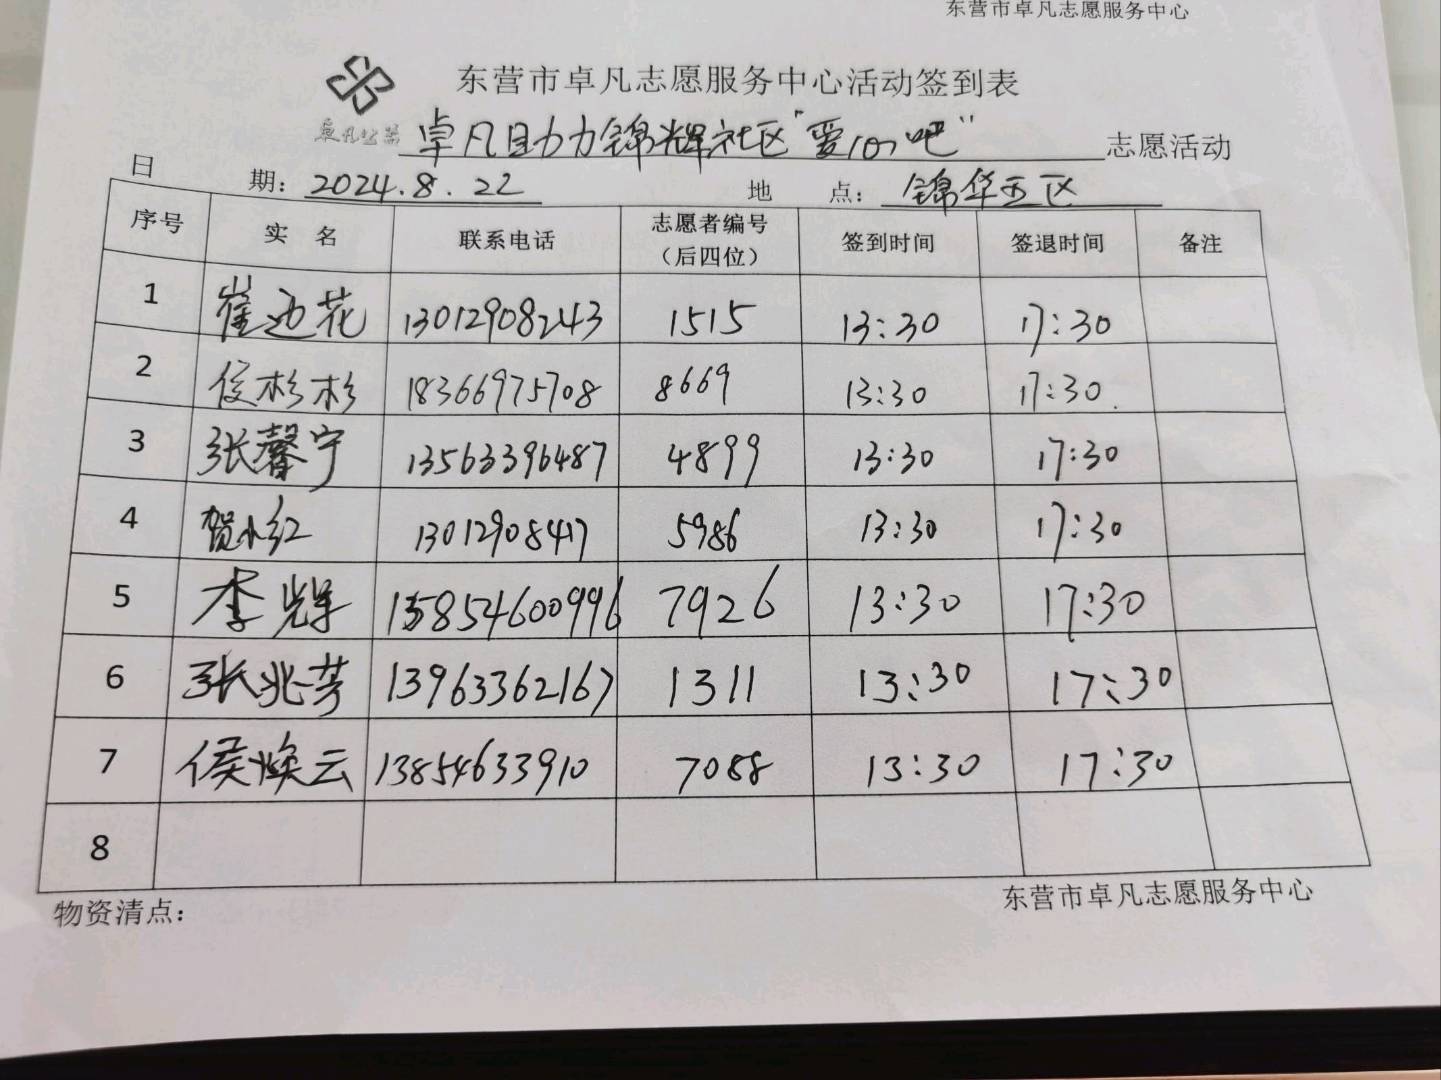 东营市卓凡志愿服务中心
东营市卓凡志愿服务中心活动签到表
卓凡公益
卓凡助力锦辉社区"爱心吧" 志愿活动
日 期：2024.8.22 地 点：锦华五区
序号 实 名 联系电话 志愿者编号（后四位） 签到时间 签退时间 备注
1 崔迎花 13012908243 1515 13:30 17:30
2 侯杉杉 18366975708 8669 13:30 17:30.
3 张馨宁 13563396487 4899 13:30 17:30
4 贺小红 13012908417 5986 13:30 17:30
5 李辉 13854600996 7926 13:30 17:30
6 张兆芳 13963362167 1311 13:30 17:30
7 侯焕云 13854633910 7088 13:30 17:30
8
物资清点： 东营市卓凡志愿服务中心